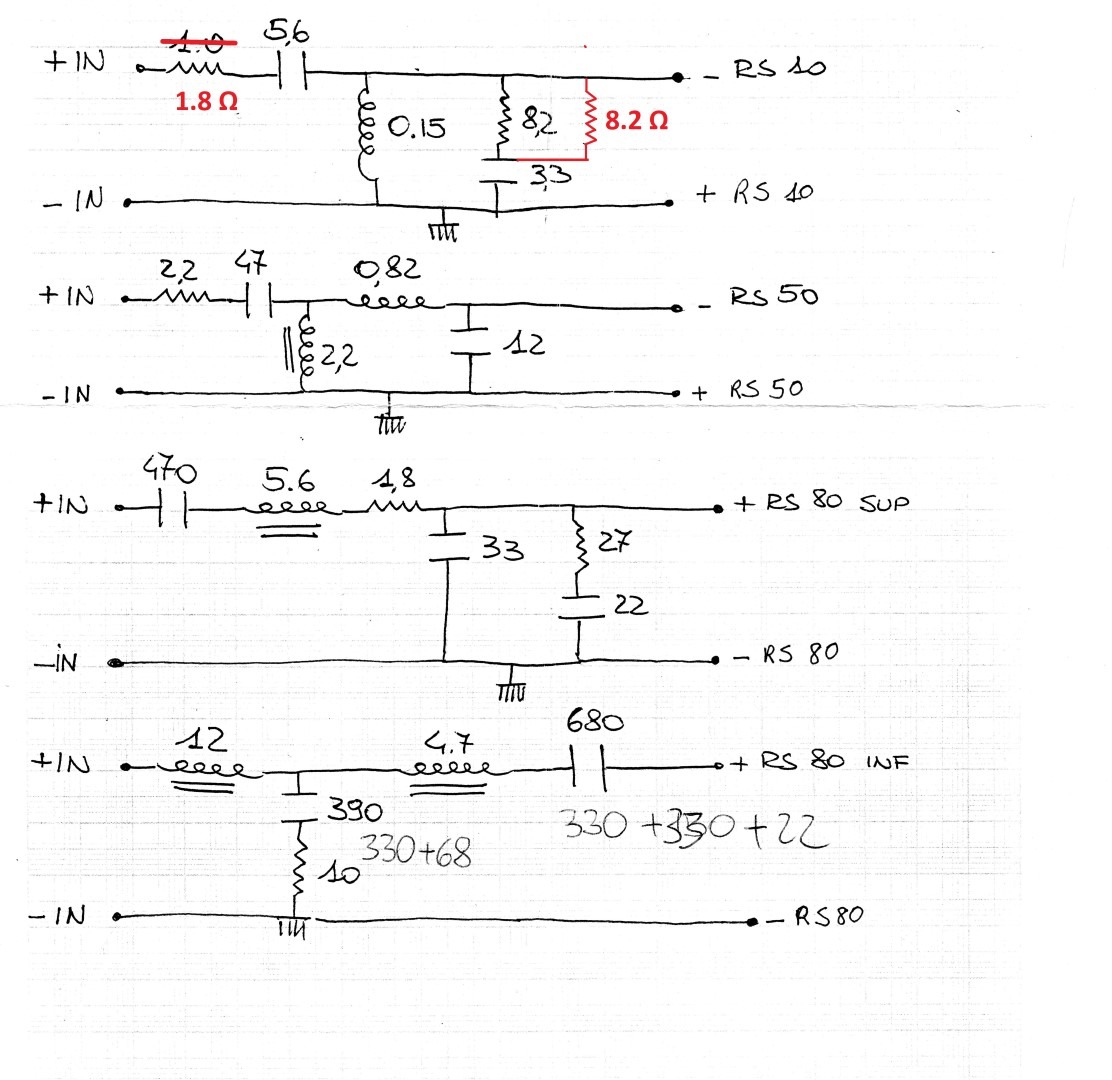 +IN 1.0 5,6 - RS 10
1.8 Ω
0.15 8,2 8.2 Ω
3,3
- IN + RS 10
2,2 47 0,82
+IN - RS 50
2,2 12
- IN + RS 50
470 5.6 1,8
+IN + RS 80 SUP
33 27
22
-iN - RS 80
680
12 4.7
+IN + RS 80 INF
390 330 +330 +22
330+68
10
- IN - RS80